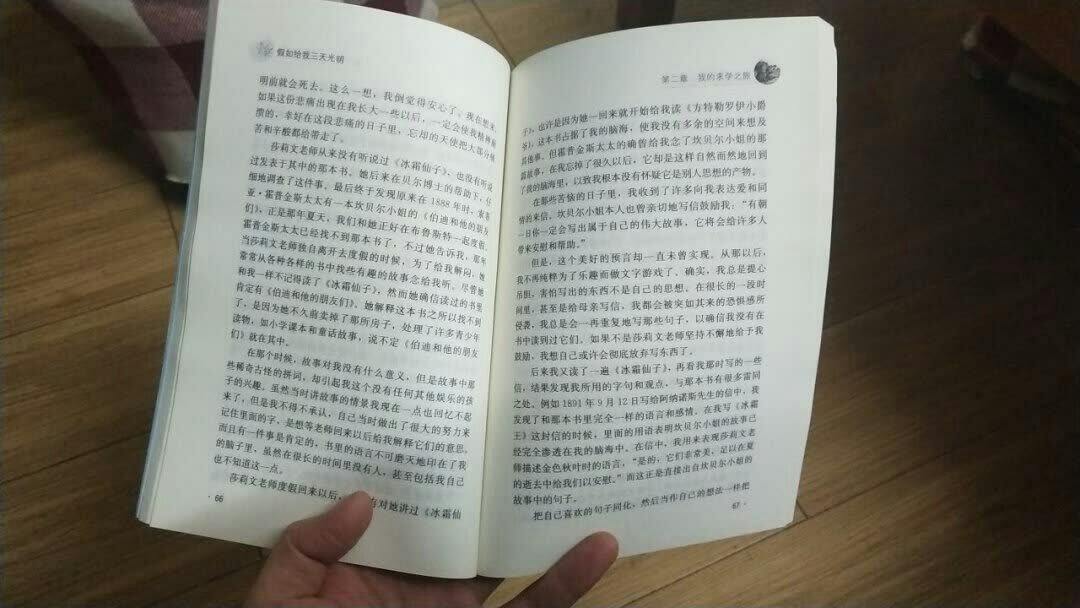 假如给我三天光明
明前就会死去。这么一想，我倒觉得安心了。我在想来，
如果这份悲痛出现在我长大一些以后，一定会使我精神崩
溃的，幸好在这段悲痛的日子里，忘却的天使把大部分痛
苦和辛酸都给带走了。
莎莉文老师从来没有听说过《冰霜仙子》，也没有听说
过发表于其中的那本书。她后来在贝尔博士的帮助下，仔
细地调查了这件事。最终于发现原来在1888年时，索菲
亚·霍普金斯太太有一本坎贝尔小姐的《伯迪和他的朋友
们》，正是那年夏天，我们和她正好在布鲁斯特一起度假。
霍普金斯太太已经找不到那本书了，不过她告诉我，那年
当莎莉文老师独自离开去度假的时候，为了给我解闷，她
常常从各种各样的书中找些有趣的故事念给我听。尽管她
和我一样不记得读了《冰霜仙子》，然而她确信读过的书里
肯定有《伯迪和他的朋友们》。她解释这本书之所以找不到
了，是因为她不久前卖掉了那所房子，处理了许多青少年
读物，如小学课本和童话故事，说不定《伯迪和他的朋友
们》就在其中。
在那个时候，故事对我没有什么意义，但是故事中那
些稀奇古怪的拼词，却引起我这个没有任何其他娱乐的孩
子的兴趣。虽然当时讲故事的情景我现在一点也回忆不起
来了，但是我不得不承认，自己当时做出了很大的努力来
记住里面的字，是想等老师回来以后给我解释它们的意思。
而且有一件事是肯定的，书里的语言不可磨灭地印在了我
的脑子里，虽然在很长的时间里没有人，甚至包括我自己
也不知道这一点。
莎莉文老师度假回来以后，有对她讲过《冰霜仙
·66
第二章 我的求学之旅
子》，也许是因为她一回来就开始给我读《方特勒罗伊小爵
爷》，这本书占据了我的脑海，使我没有多余的空间来想及
其他事。但霍普金斯太太的确曾给我念了坎贝尔小姐的那
篇故事，在我忘掉了很久以后，它却是这样自然而然地回到
了我的脑海里，以致我根本没有怀疑它是别人思想的产物。
在那些苦恼的日子里，我收到了许多向我表达爱和同
情的来信。坎贝尔小姐本人也曾亲切地写信鼓励我：“有朝
一日你一定会写出属于自己的伟大故事，它将会给许多人
带来安慰和帮助。”
但是，这个美好的预言却一直未曾实现。从那以后，
我不再纯粹为了乐趣而做文字游戏了。确实，我总是提心
吊胆，害怕写出的东西不是自己的思想。在很长的一段时
间里，甚至是给母亲写信，我都会被突如其来的恐惧感所
侵袭，我总是会一再重复地写那些句子，以确信我没有在
书中读到过它们。如果不是莎莉文老师坚持不懈地给予我
鼓励，我想自己或许会彻底放弃写东西了。
后来我又读了一遍《冰霜仙子》，再看我那时写的一些
信，结果发现我所用的字句和观点，与那本书有很多雷同
之处。例如1891年9月12日写给阿纳诺斯先生的信中，我
发现了和那本书里完全一样的语言和感情。在我写《冰霜
王》这封信的时候，里面的用语表明坎贝尔小姐的故事已
经完全渗透在我的脑海中。在信中，我用来表现莎莉文老
师描述金色秋叶时的语言，“是的，它们非常美，足以在夏
的逝去中给我们以安慰。”而这正是直接出自坎贝尔小姐的
故事中的句子。
把自己喜欢的句子同化，然后当作自己的想法一样把
67·